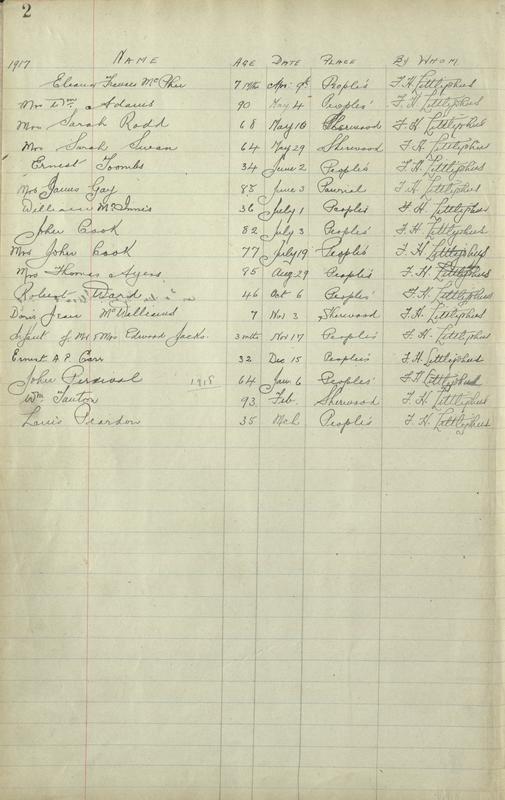 2
1917 NAME AGE DATE PLACE By WHOM
Eleanor Frances McPhee 7 Mths Apr 9th People's F. H. Littlejohns
Mrs Wm Adams 90 May 4 Peoples' F. H. Littlejohns
Mrs Sarah Rodd 68 May 10 Sherwood F. H. Littlejohns
Mrs Sarah Swan 64 May 29 Sherwood F. H. Littlejohns
Ernest Toombs 34 June 2 People's F. H. Littlejohns
Mrs James Gay 88 June 3 F. H. Littlejohns
William McInnis 36 July 1 Peoples F. H. Littlejohns
John Cook 82 July 3 People's F. H. Littlejohns
Mrs John Cook 77 July 19 People's F. H. Littlejohns
Mrs Thomas Ayers 85 Aug 29 People's F. H. Littlejohns
Robert Ward 46 Oct 6 Peoples' F. H. Littlejohns
Doris Jean McWilliams 7 Nov 3 Sherwood F. H. Littlejohns
Infant of Mr & Mrs Edward Jacks. 3 mths Nov 17 People's F. H. Littlejohns
Ernest A P Carr 32 Dec 15 People's F. H. Littlejohns
John Percival 1918 64 Jan 6 Peoples' F. H. Littlejohns
Wm Tanton 93 Feb. Sherwood F. H. Littlejohns
Louis Peardon 35 Mch People's F. H. Littlejohns